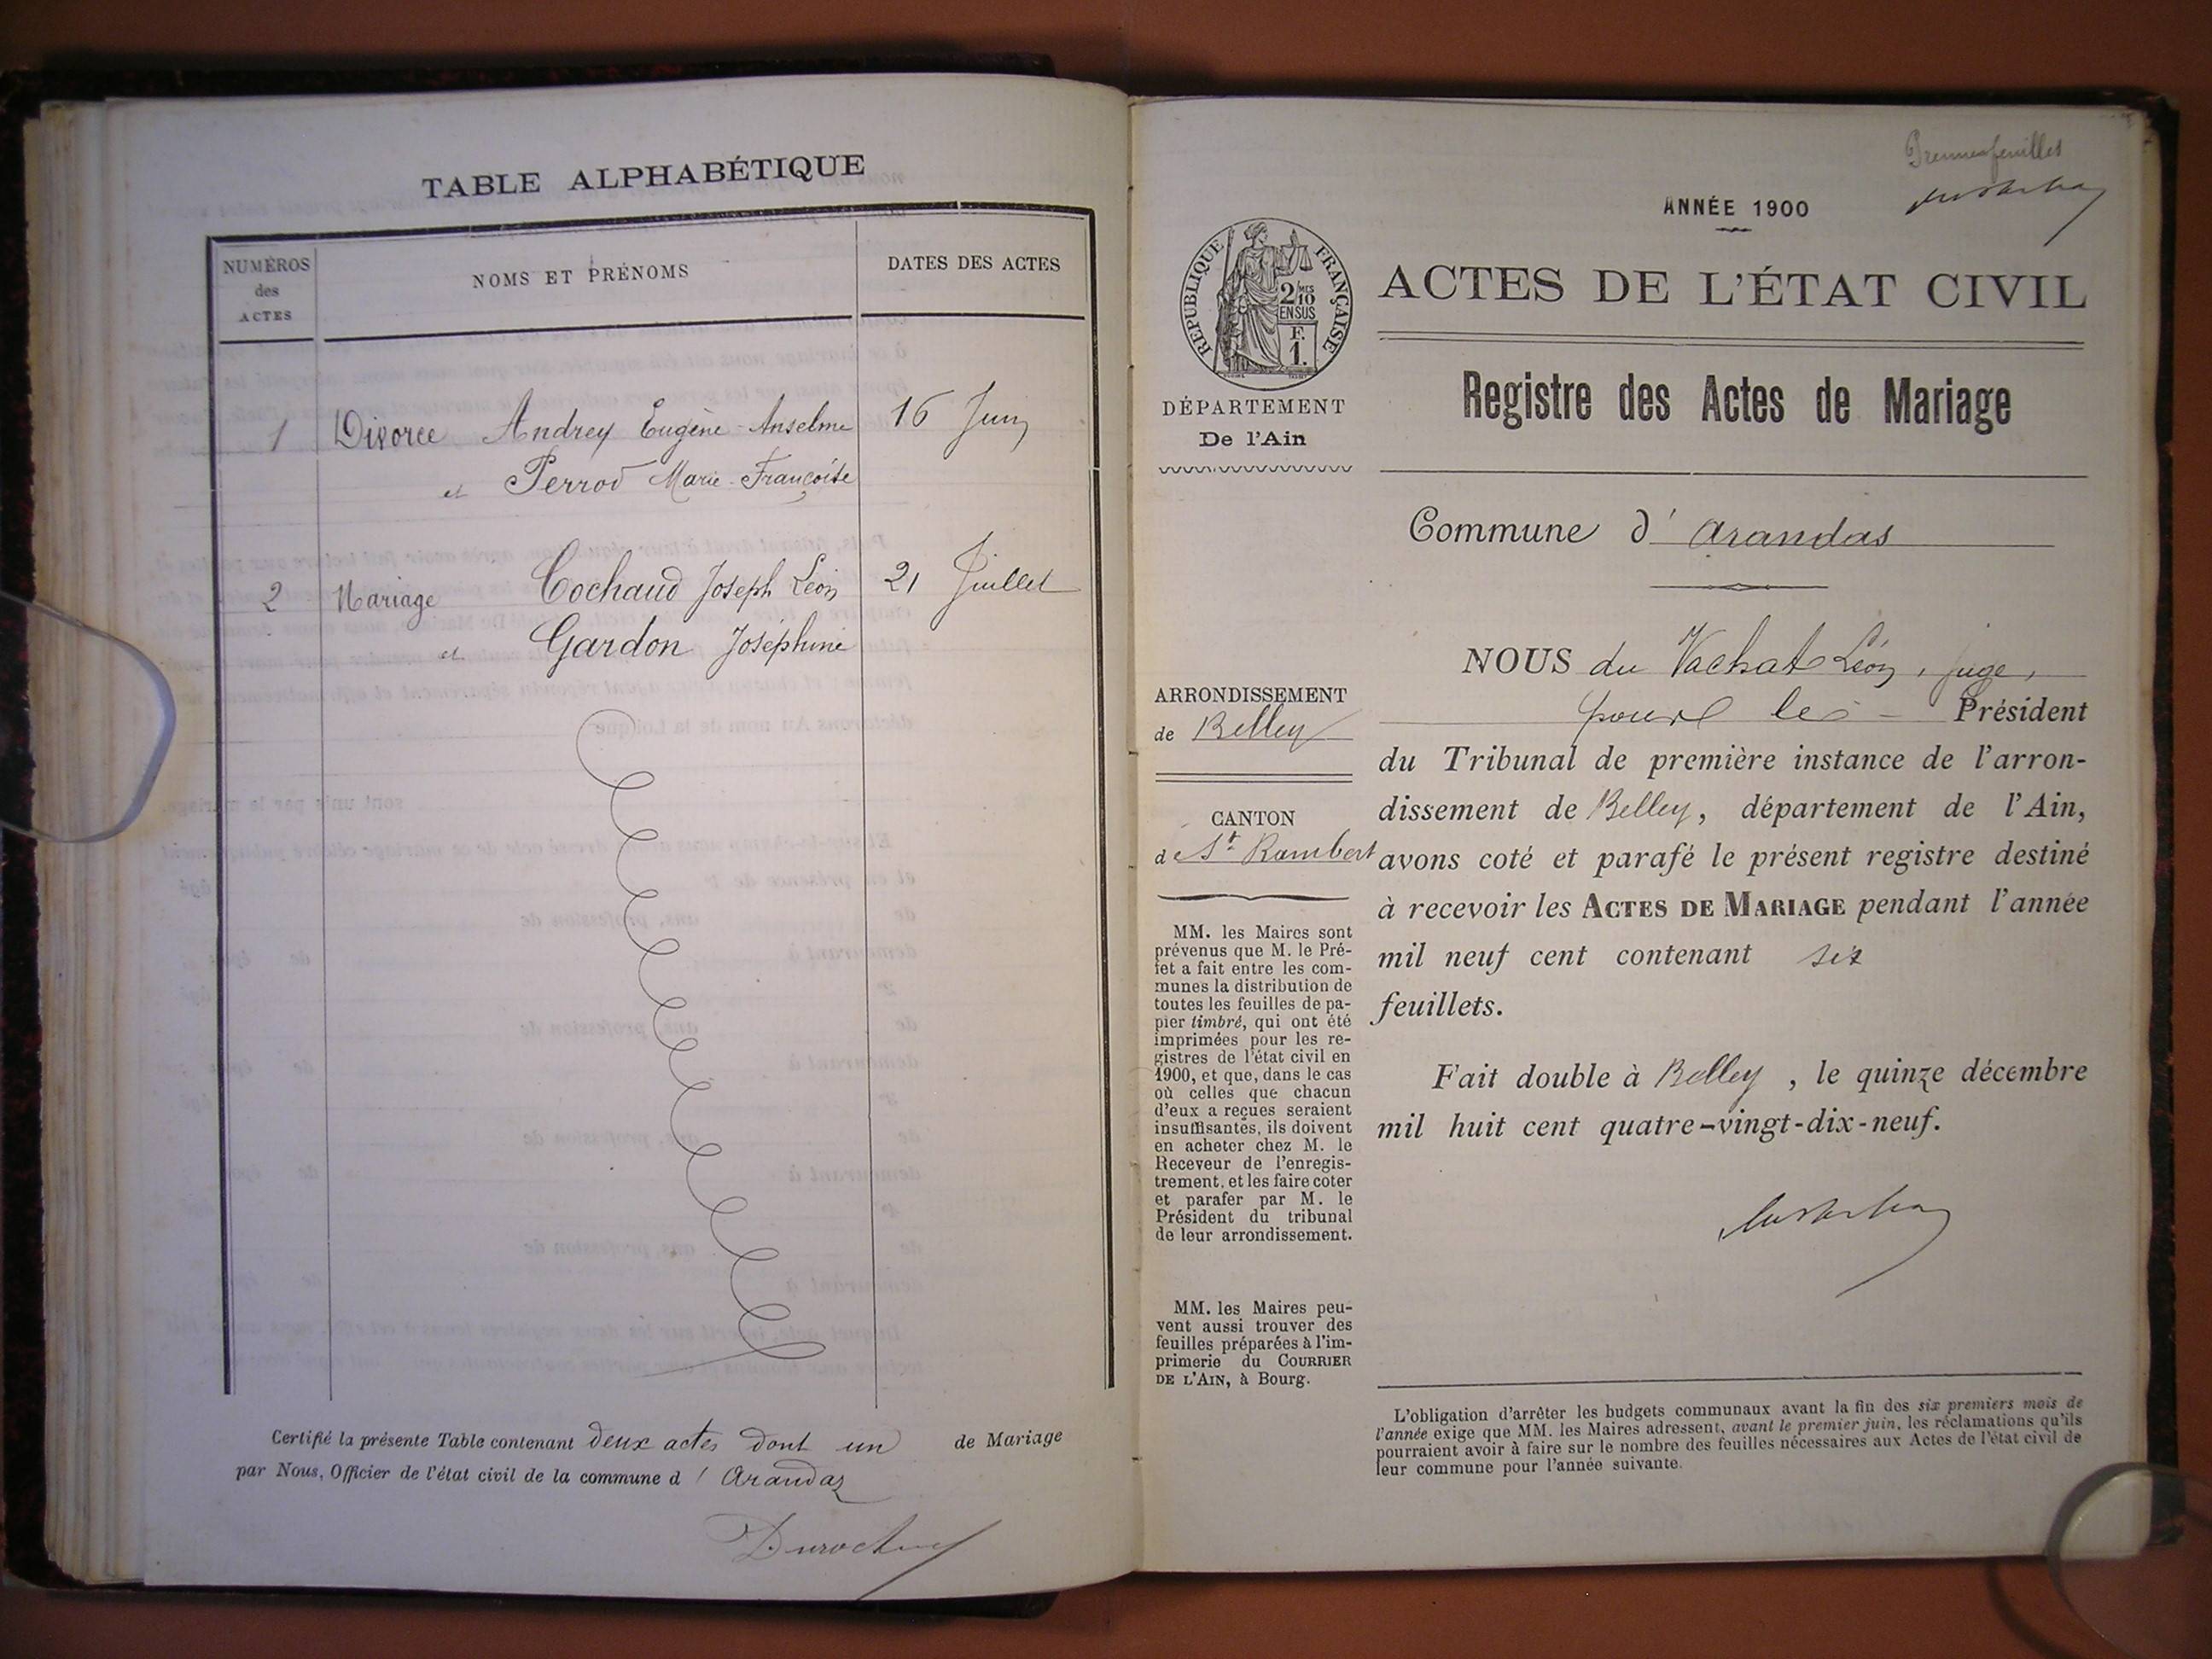 TABLE ALPHABÉTIQUE
NUMÉROS
des
ACTES
NOMS ET PRÉNOMS
DATES DES ACTES
1 Divorce Andrey Eugène-Anselme 16 Juin
et Perrod Marie-Françoise
2 Mariage Cochaud Joseph Léon 21 Juillet
et Gardon Joséphine
Certifié la présente Table contenant deux actes dont un de Mariage
par Nous, Officier de l'état civil de la commune d'Arandas
ANNÉE 1900
RÉPUBLIQUE FRANÇAISE
2/10 MES
EN SUS
F.
1.
DÉPARTEMENT
De l'Ain
ACTES DE L'ÉTAT CIVIL
Registre des Actes de Mariage
Commune d'Arandas
ARRONDISSEMENT
de Belley
CANTON
de St Rambert
MM. les Maires sont
prévenus que M. le Pré-
fet a fait entre les com-
munes la distribution de
toutes les feuilles de pa-
pier timbré, qui ont été
imprimées pour les re-
gistres de l'état civil en
1900, et que, dans le cas
où celles que chacun
d'eux a reçues seraient
insuffisantes, ils doivent
en acheter chez M. le
Receveur de l'enregis-
trement, et les faire coter
et parafer par M. le
Président du tribunal
de leur arrondissement.
MM. les Maires peu-
vent aussi trouver des
feuilles préparées à l'im-
primerie du COURRIER
DE L'AIN, à Bourg.
NOUS du Vachat Léon, juge,
pour le Président
du Tribunal de première instance de l'arron-
dissement de Belley, département de l'Ain,
avons coté et parafé le présent registre destiné
à recevoir les ACTES DE MARIAGE pendant l'année
mil neuf cent contenant six
feuillets.
Fait double à Belley, le quinze décembre
mil huit cent quatre-vingt-dix-neuf.
L'obligation d'arrêter les budgets communaux avant la fin des six premiers mois de
l'année exige que MM. les Maires adressent, avant le premier juin, les réclamations qu'ils
pourraient avoir à faire sur le nombre des feuilles nécessaires aux Actes de l'état civil de
leur commune pour l'année suivante.